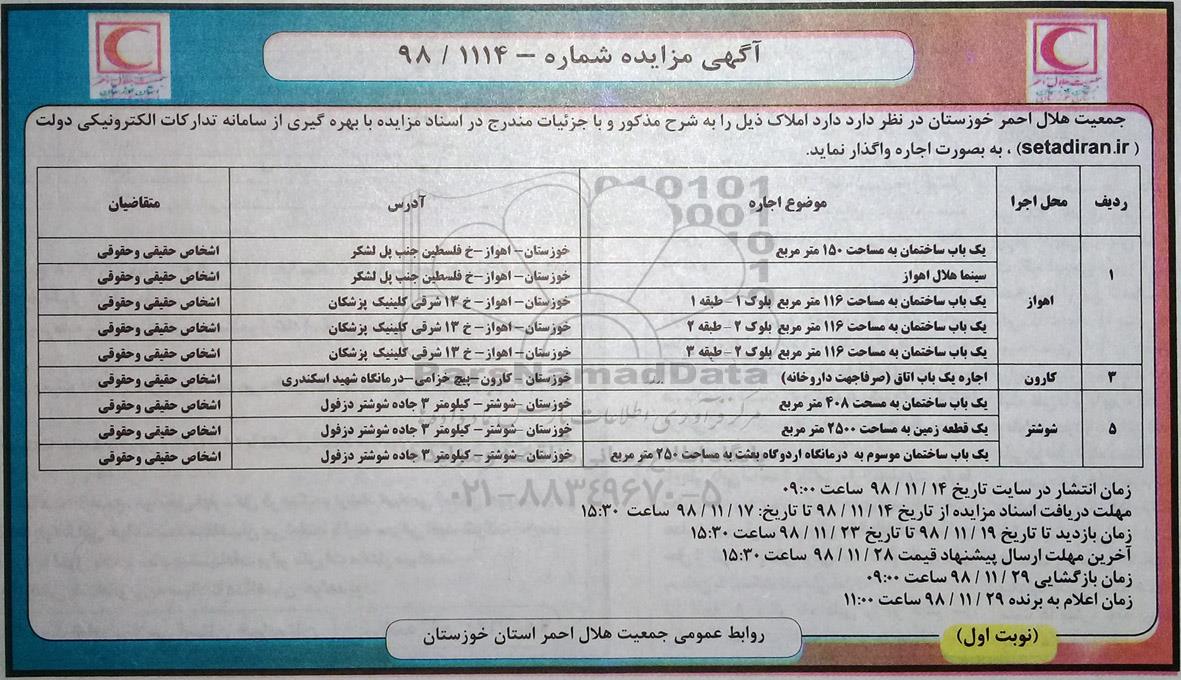 آگهی مزایده شماره – ۱۱۱۴ / ۹۸
جمعیت هلال احمر خوزستان در نظر دارد دارد املاک ذیل را به شرح مذکور و با جزئیات مندرج در اسناد مزایده با بهره گیری از سامانه تدارکات الکترونیکی دولت
( setadiran.ir) ، به بصورت اجاره واگذار نماید.
ردیف محل اجرا موضوع اجاره آدرس متقاضیان
۱ اهواز یک باب ساختمان به مساحت ۱۵۰ متر مربع خوزستان– اهواز–خ فلسطین جنب پل لشگر اشخاص حقیقی وحقوقی
سینما هلال اهواز خوزستان– اهواز–خ فلسطین جنب پل لشگر اشخاص حقیقی وحقوقی
یک باب ساختمان به مساحت ۱۱۶ متر مربع بلوک ۱ – طبقه ۱ خوزستان– اهواز– خ ۱۳ شرقی کلینیک پزشکان اشخاص حقیقی وحقوقی
یک باب ساختمان به مساحت ۱۱۶ متر مربع بلوک ۲ – طبقه ۲ خوزستان– اهواز– خ ۱۳ شرقی کلینیک پزشکان اشخاص حقیقی وحقوقی
یک باب ساختمان به مساحت ۱۱۶ متر مربع بلوک ۲ – طبقه ۳ خوزستان– اهواز– خ ۱۳ شرقی کلینیک پزشکان اشخاص حقیقی وحقوقی
۳ کارون اجاره یک باب اتاق (صرفاجهت داروخانه) خوزستان – کارون–پیچ خزامی–درمانگاه شهید اسکندری اشخاص حقیقی وحقوقی
۵ شوشتر یک باب ساختمان به مسحت ۴۰۸ متر مربع خوزستان –شوشتر– کیلومتر ۳ جاده شوشتر دزفول اشخاص حقیقی وحقوقی
یک قطعه زمین به مساحت ۲۵۰۰ متر مربع خوزستان –شوشتر– کیلومتر ۳ جاده شوشتر دزفول اشخاص حقیقی وحقوقی
یک باب ساختمان موسوم به درمانگاه اردوگاه بعثت به مساحت ۲۵۰ متر مربع خوزستان –شوشتر– کیلومتر ۳ جاده شوشتر دزفول اشخاص حقیقی وحقوقی
ParsNamadData
۰۲۱–۸۸۳۴۹۶۷۰–۵
زمان انتشار در سایت تاریخ ۱۴ / ۱۱ / ۹۸ ساعت ۰۹:۰۰
مهلت دریافت اسناد مزایده از تاریخ ۱۴ / ۱۱ / ۹۸ تا تاریخ: ۱۷ / ۱۱ / ۹۸ ساعت ۱۵:۳۰
زمان بازدید تا تاریخ ۱۹ / ۱۱ / ۹۸ تا تاریخ ۲۳ / ۱۱ / ۹۸ ساعت ۱۵:۳۰
آخرین مهلت ارسال پیشنهاد قیمت ۲۸ / ۱۱ / ۹۸ ساعت ۱۵:۳۰
زمان بازگشایی ۲۹ / ۱۱ / ۹۸ ساعت ۰۹:۰۰
زمان اعلام به برنده ۲۹ / ۱۱ / ۹۸ ساعت ۱۱:۰۰
(نوبت اول)
روابط عمومی جمعیت هلال احمر استان خوزستان